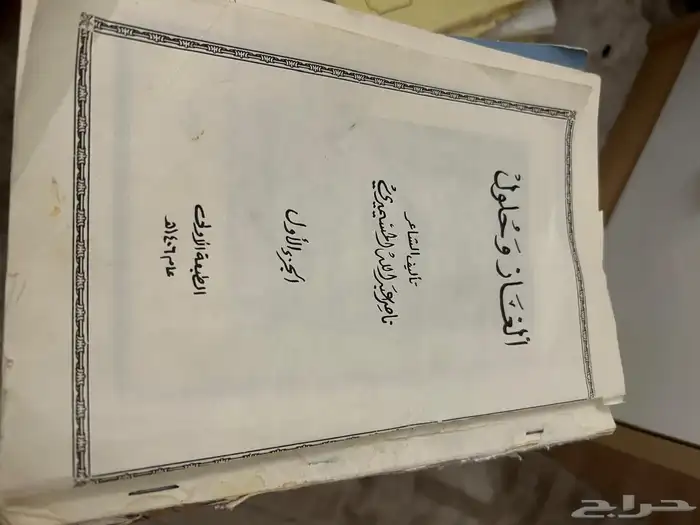 ألغاز وَحُلول
تأليف الشاعر
ناصر عبد الله المسيميري
الجزء الأول
الطبعة الأولى
عام ١٤٠٦هـ
حراج